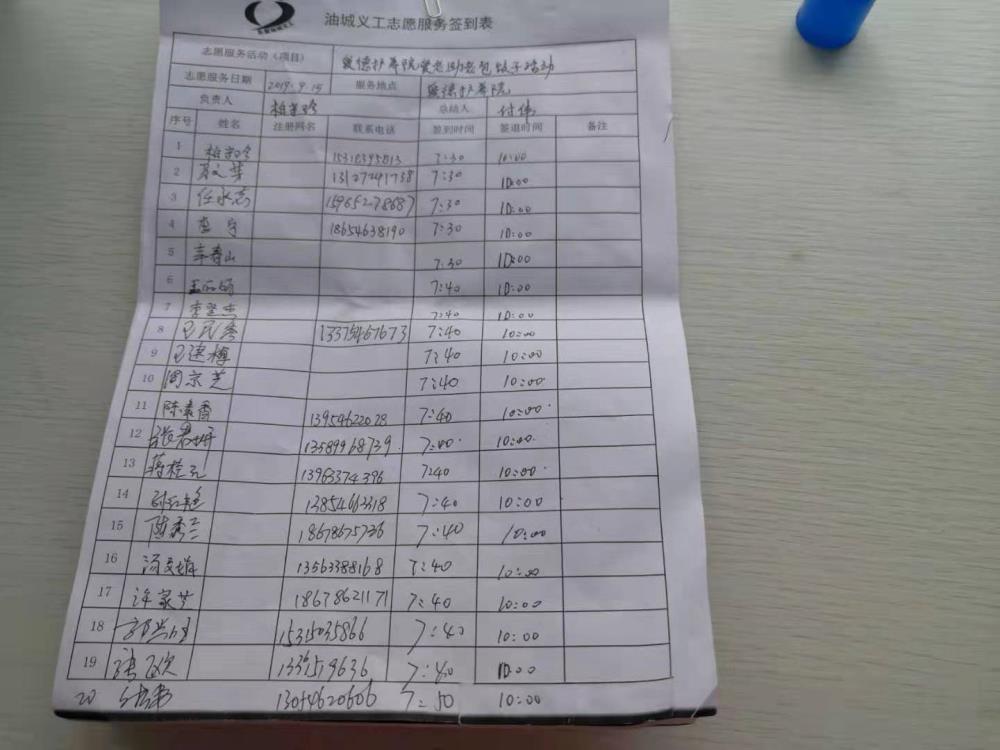 油城义工志愿服务签到表
志愿服务活动（项目） 爱德护养院爱老助老包饺子活动
志愿服务日期 2019.9.15 服务地点 爱德护养院
负责人 总结人 付伟
序号 姓名 注册网名 联系电话 签到时间 签退时间 备注
1 15318395813 7:30 10:00
2 13127291738 7:30 10:00
3 任永志 15965278687 7:30 10:00
4 李宁 18654638190 7:30 10:00
5 7:30 10:00
6 7:40 10:00
7 7:40 10:00
8 13375467673 7:40 10:00
9 7:40 10:00
10 周京芝 7:40 10:00
11 陈素香 13954622028 7:40 10:00
12 13589968739 7:00 10:00
13 蒋桂元 13963374396 7:40 10:00
14 13854663318 7:40 10:00
15 陈秀兰 18678675736 7:40 10:00
16 13563388168 7:40 10:00
17 许家芝 18678621171 7:40 10:00
18 15315035866 7:40 10:00
19 7:40 10:00
20 13054620606 7:50 10:00